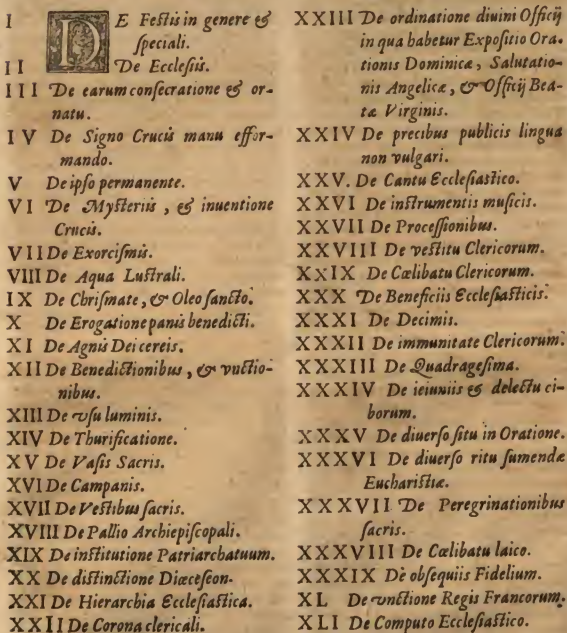 I DE Festis in genere &
speciali.
II De Ecclesiis.
III De earum consecratione & or-
natu.
IV De Signo Crucis manu effor-
mando.
V De ipso permanente.
VI De Mysteriis, & inuentione
Crucis.
VII De Exorcismis.
VIII De Aqua Lustrali.
IX De Chrismate, & Oleo sancto.
X De Erogatione panis benedicti.
XI De Agnis Dei cereis.
XII De Benedictionibus, & vnctio-
nibus.
XIII De vsu luminis.
XIV De Thurificatione.
XV De Vasis Sacris.
XVI De Campanis.
XVII De Vestibus sacris.
XVIII De Pallio Archiepiscopali.
XIX De institutione Patriarchatuum.
XX De distinctione Diœceseon.
XXI De Hierarchia Ecclesiastica.
XXII De Corona clericali.
XXIII De ordinatione diuini Officij
in qua habetur Expositio Ora-
tionis Dominicæ, Salutatio-
nis Angelicæ, & Officij Bea-
tæ Virginis.
XXIV De precibus publicis lingua
non vulgari.
XXV. De Cantu Ecclesiastico.
XXVI De instrumentis musicis.
XXVII De Processionibus.
XXVIII De vestitu Clericorum.
XXIX De Cœlibatu Clericorum.
XXX De Beneficiis Ecclesiasticis.
XXXI De Decimis.
XXXII De immunitate Clericorum.
XXXIII De Quadragesima.
XXXIV De ieiuniis & delectu ci-
borum.
XXXV De diuerso situ in Oratione.
XXXVI De diuerso ritu sumendæ
Eucharistiæ.
XXXVII De Peregrinationibus
sacris.
XXXVIII De Cœlibatu laico.
XXXIX De obsequiis Fidelium.
XL De vnctione Regis Francorum.
XLI De Computo Ecclesiastico.